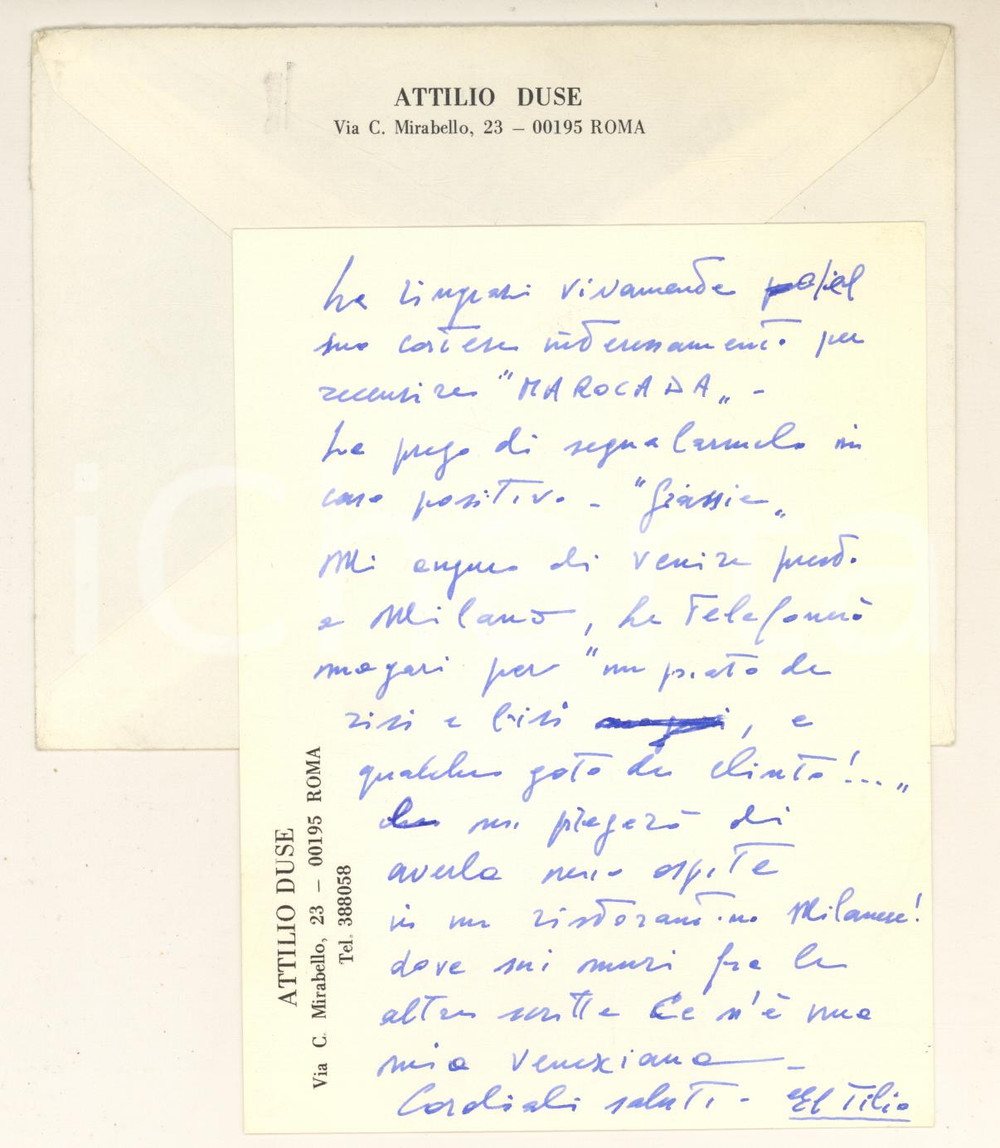 ATTILIO DUSE
Via C. Mirabello, 23 – 00195 ROMA
La ringrazi vivamente pel
suo cortese interessamento per
recensire "MAROCADA„ –
La prego di segnalarmelo in
caso positivo – "Grassie„
Mi auguro di venire presto
a Milano, Le telefonerò
magari per "un piato de
risi e bisi, e
qualche goto de clinto!...„
mi piegerò di
averla mio ospite
in un ristorantino Milanese!
dove sui muri fra le
altre scritte Ce n'è una
mia Veneziana –
Cordiali saluti – El Tilio
ATTILIO DUSE
Via C. Mirabello, 23 – 00195 ROMA
Tel. 388058
iCharta